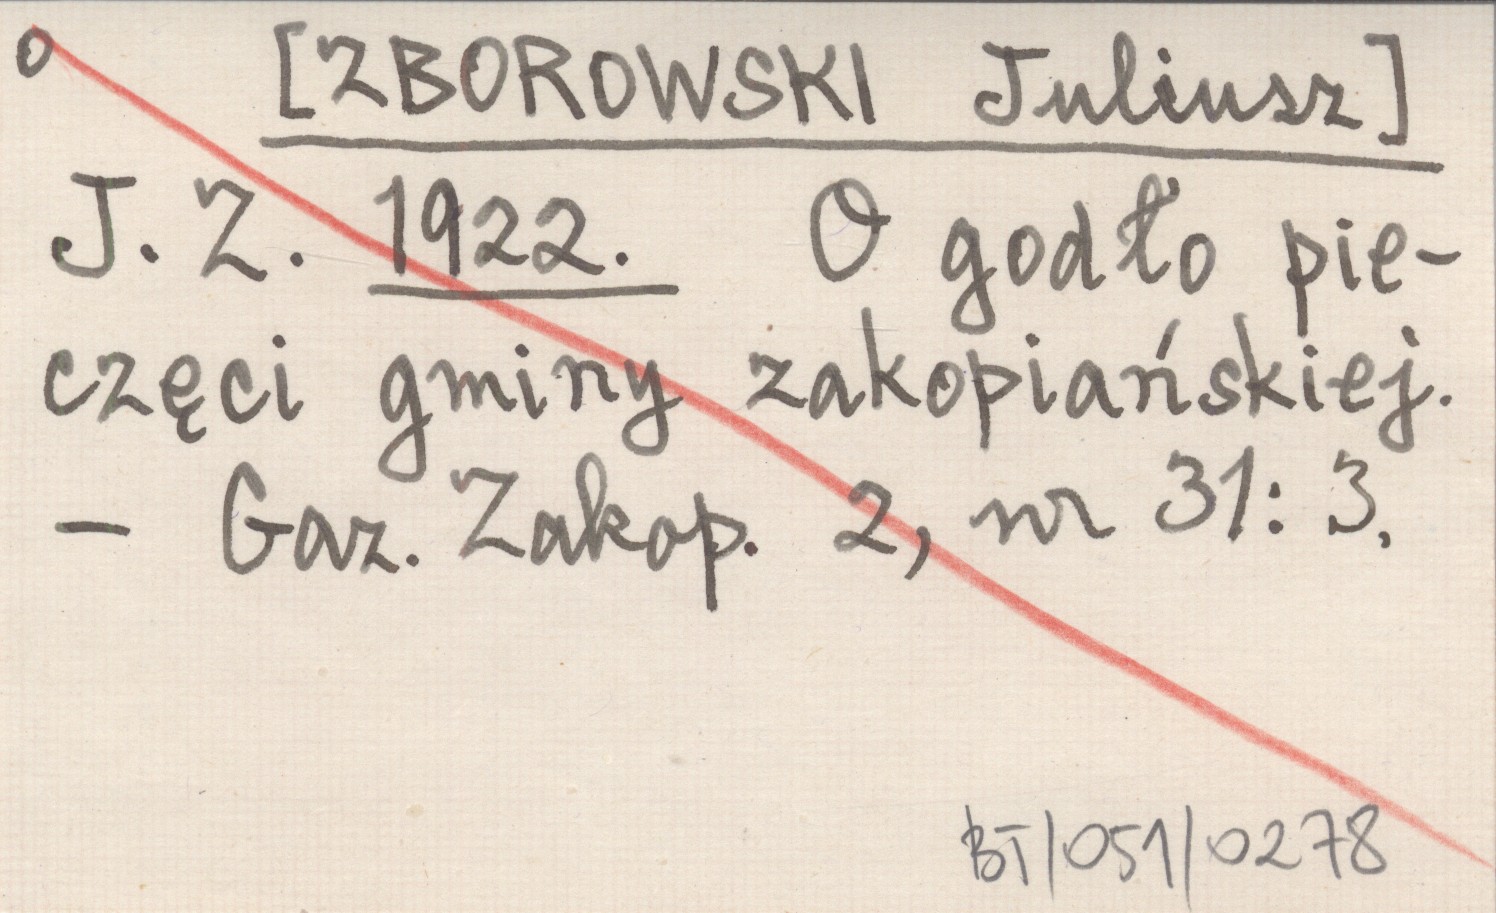 o [ZBOROWSKI Juliusz]
J. Z. 1922. O godło pie-
częci gminy zakopiańskiej.
– Gaz. Zakop. 2, nr 31: 3.
BT/051/0278